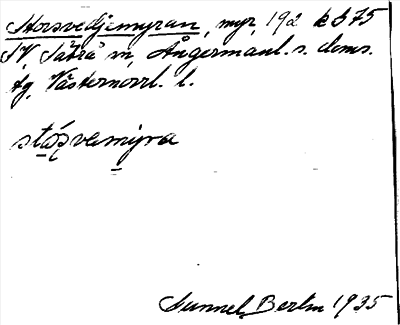 Storsvedjemyran, myr, 192 k b 75
SV Sätra m, Ångermanl. s. doms.
tg, Västernorrl. l.
stásvemýra
Gunnel Berlin 1935